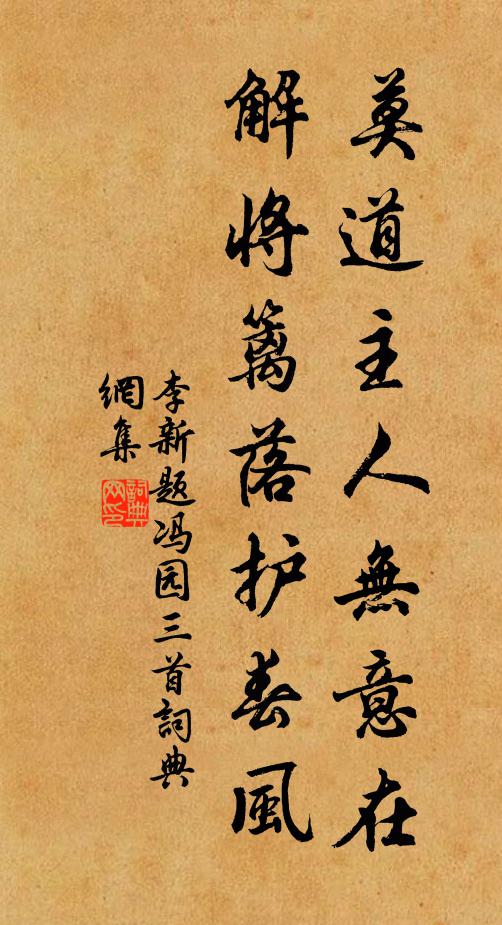 莫道主人無意在
解將籬落护春風
李新题冯园三首詞典
網集
詞典
网印